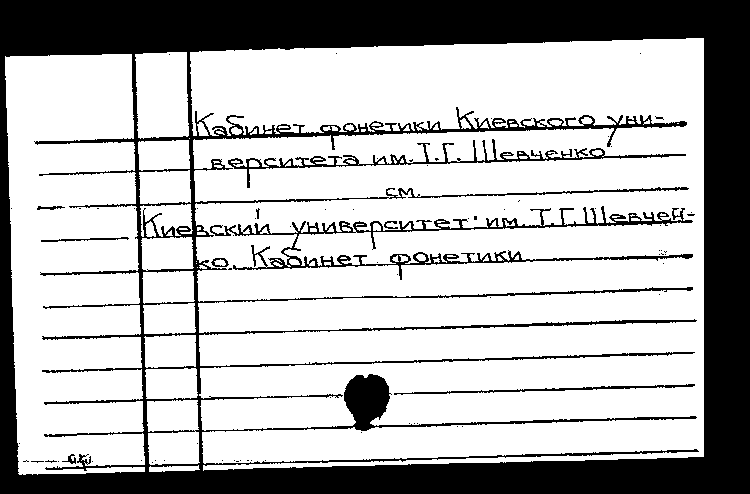 Кабинет фонетики Киевского уни-
верситета им. Т.Г. Шевченко
см.
Киевский университет им. Т.Г. Шевчен-
ко. Кабинет фонетики